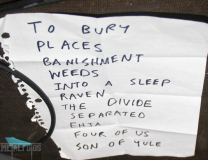 TO BURY
PLACES
BANISHMENT
WEEDS
INTO A SLEEP
RAVEN
THE DIVIDE
SEPARATED
EHTA
FOUR OF US
SON OF YULE
METALKAOS